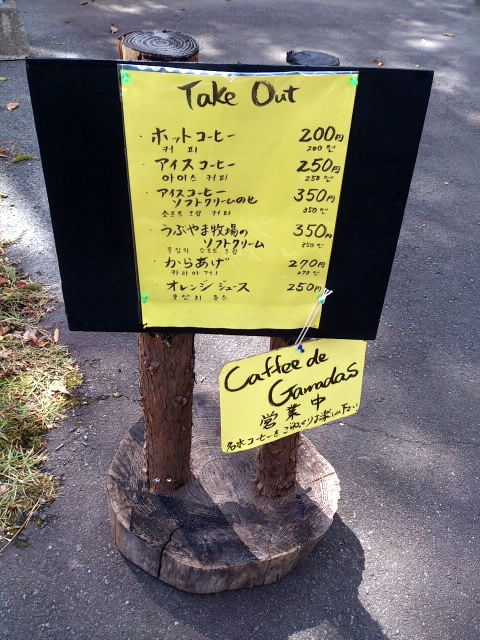 Take Out
・ホットコーヒー 200円
커피 200엔
・アイスコーヒー 250円
아이스 커피 250엔
・アイスコーヒー
ソフトクリームのせ 350円
소프트 크림 커피 350엔
・うぶやま牧場の
ソフトクリーム 350円
소프트 크림 350엔
・からあげ 270円
카라아게 270엔
・オレンジジュース 250円
오렌지 쥬스
Caffee de
Gamadas
営業中
名水コーヒーをごゆっくりお楽しみ下さい